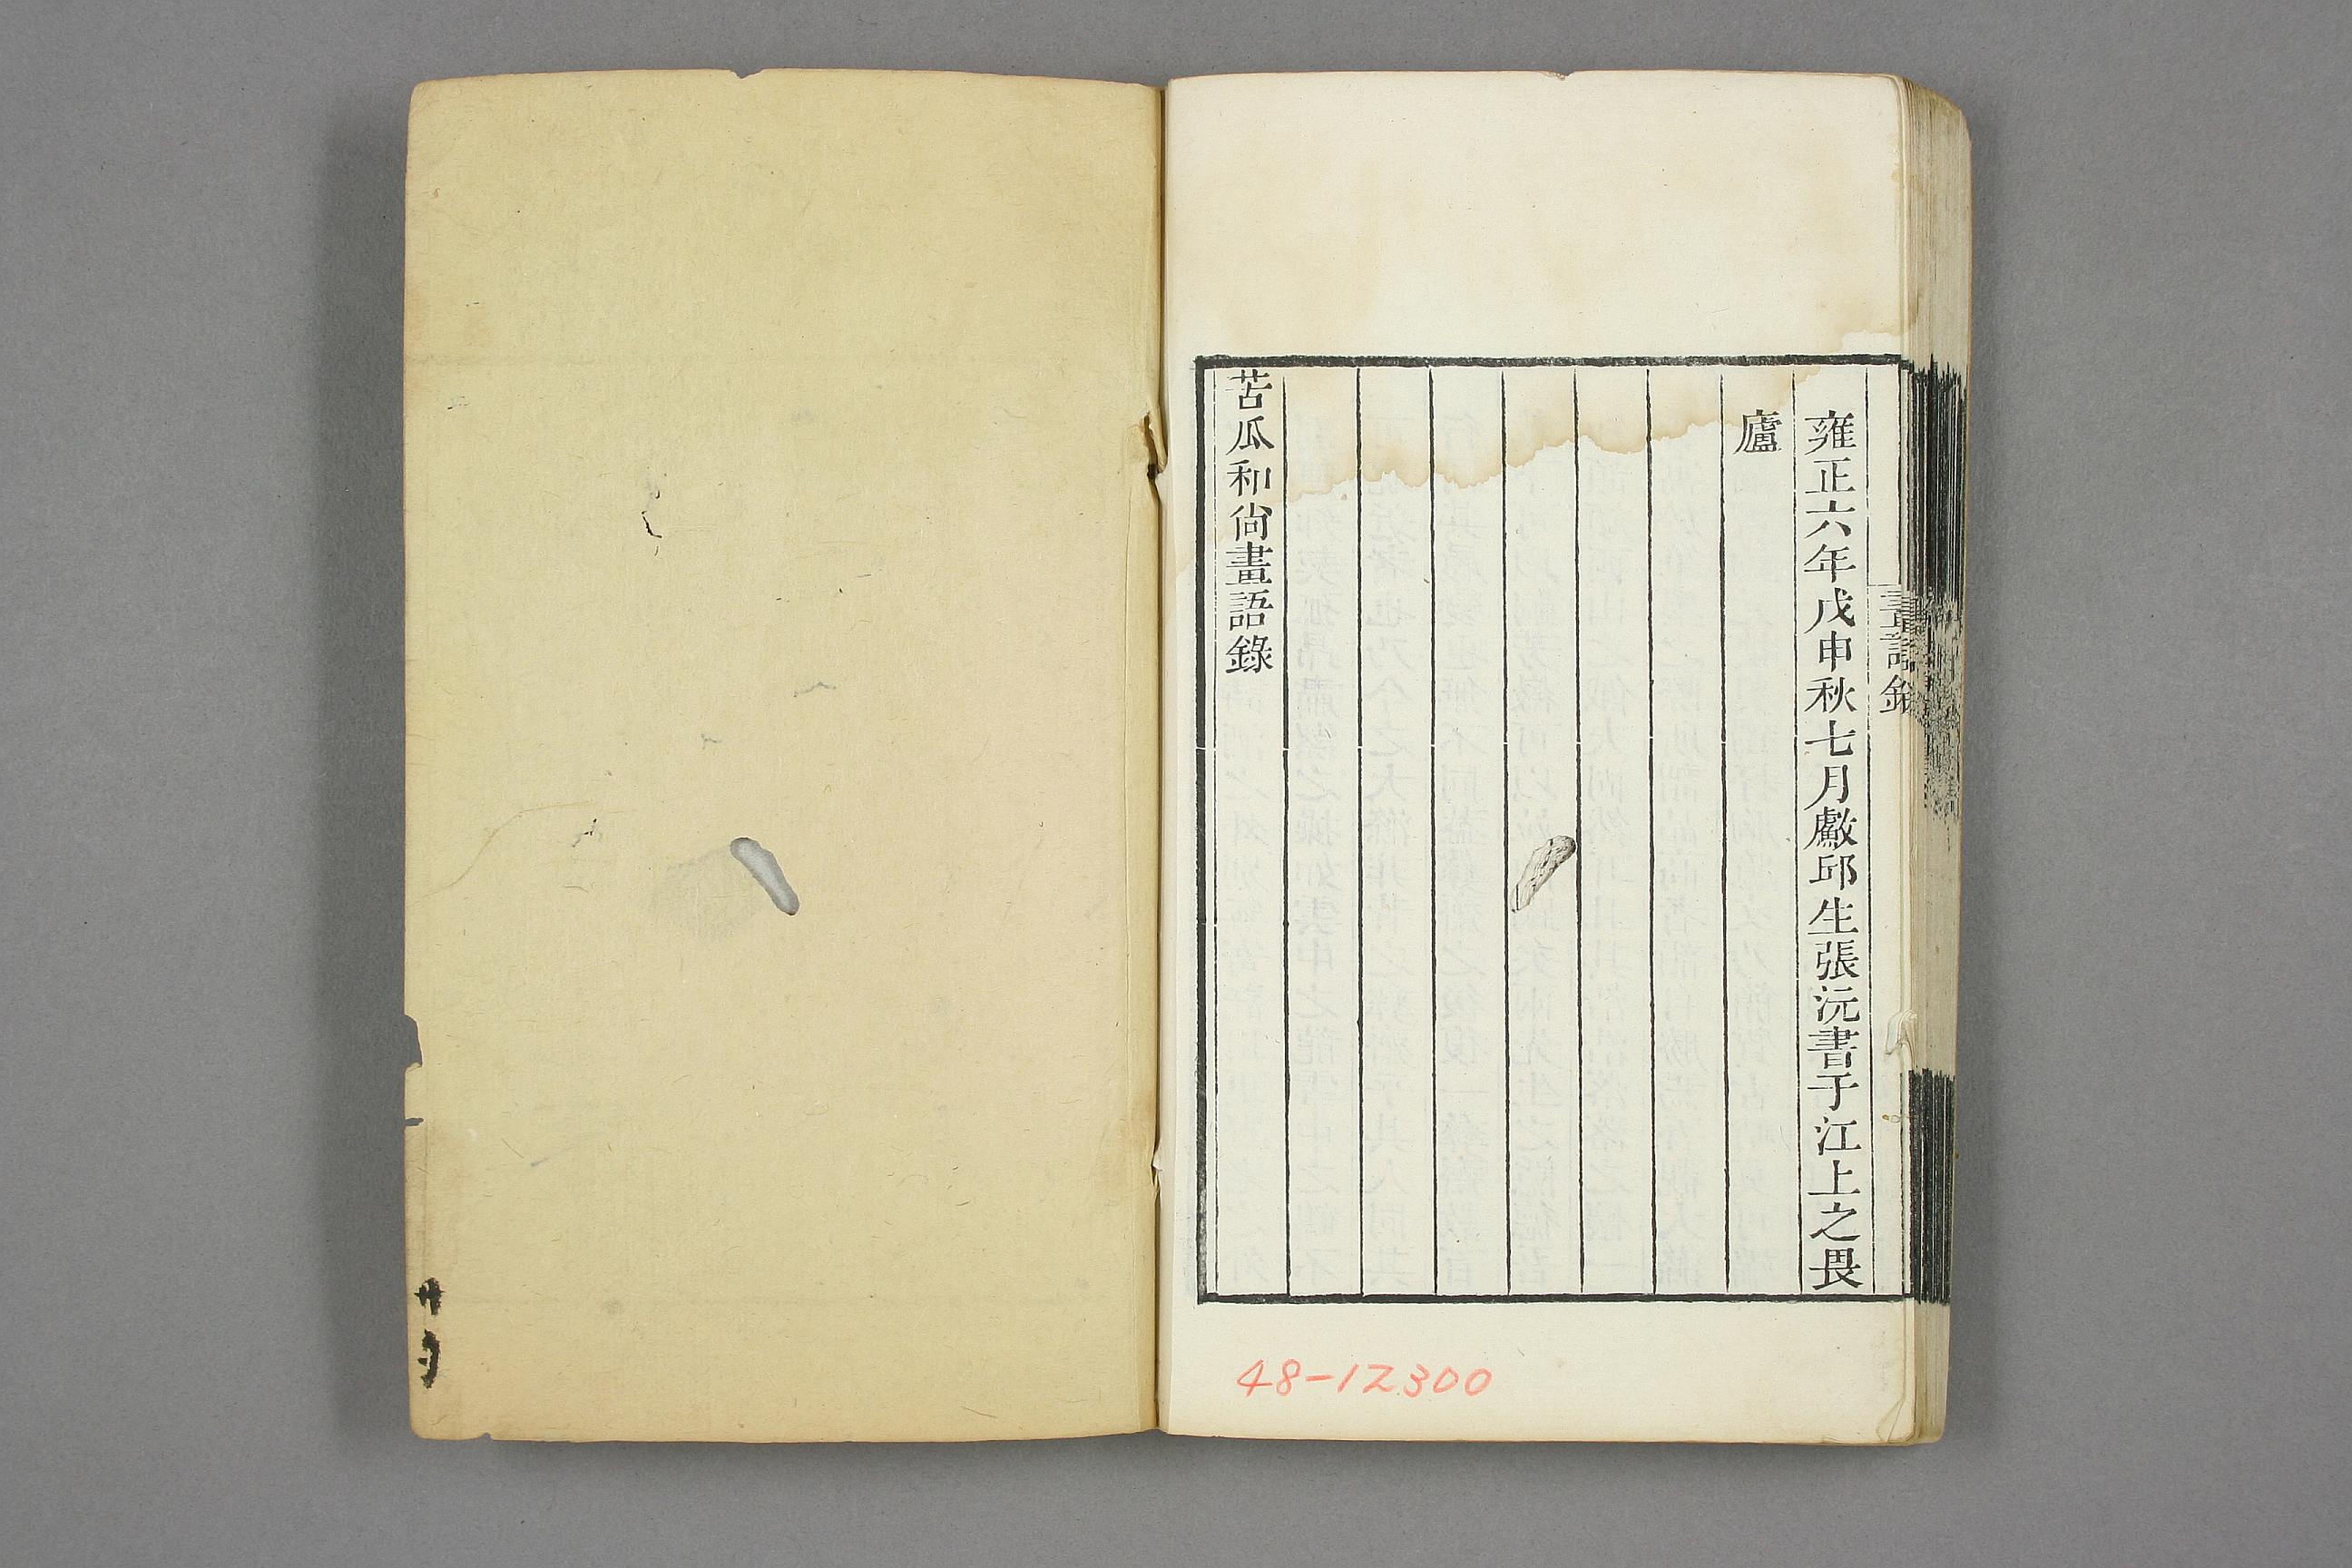 畫語錄
雍正六年戊申秋七月戲邱生張沅書于江上之畏
廬
苦瓜和尚畫語錄
48-12300